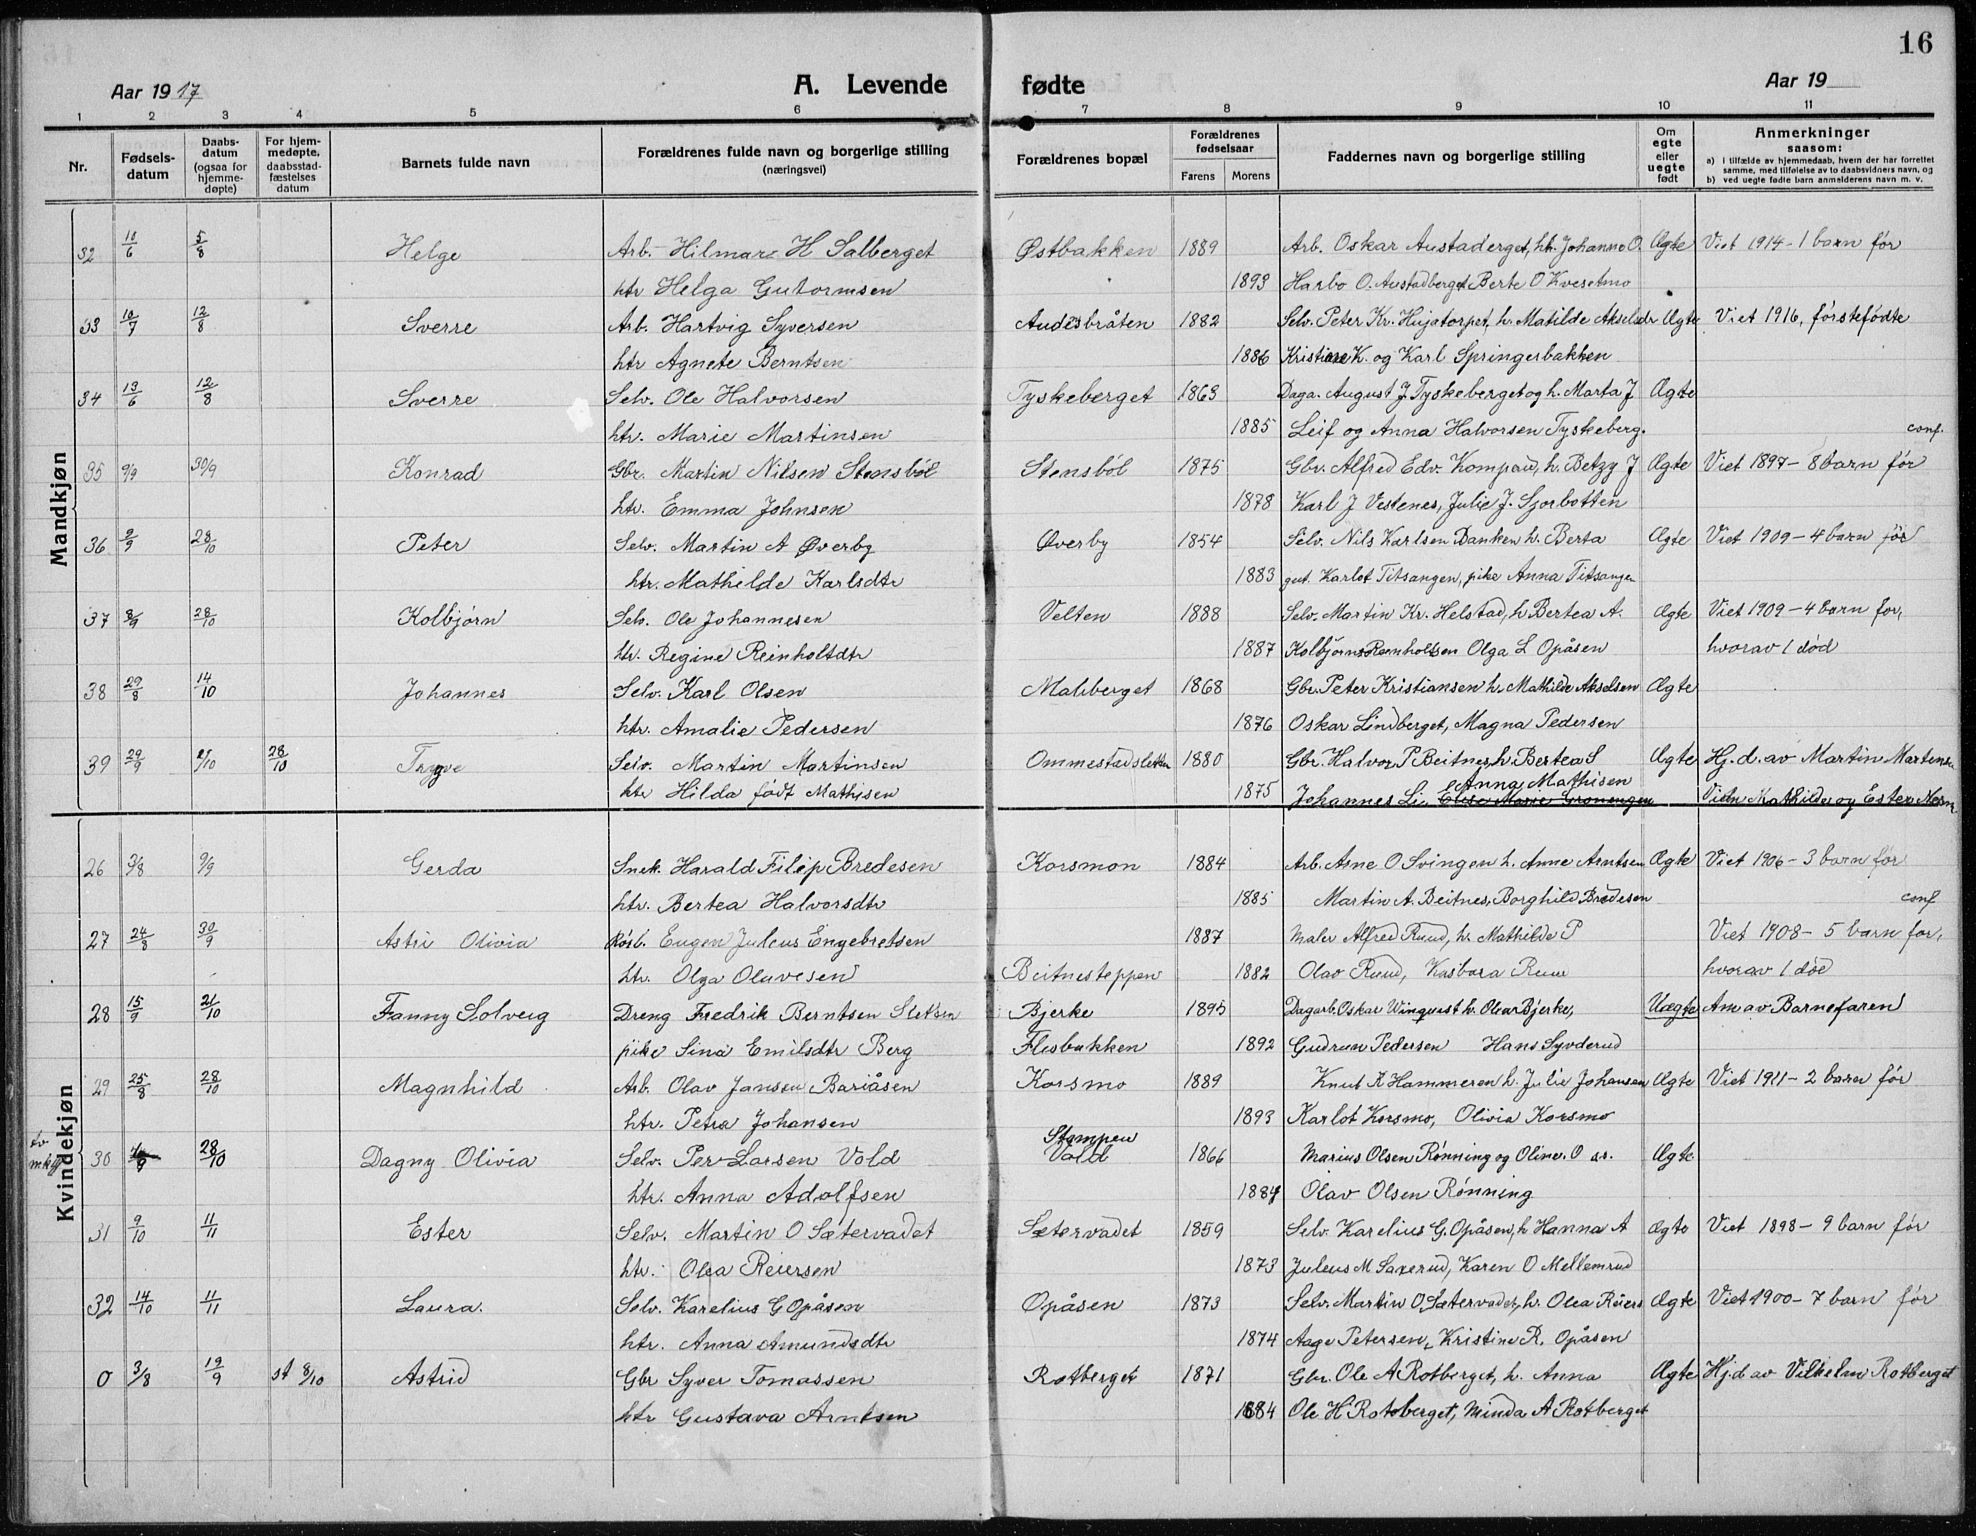 16
Aar 1917 A. Levende fødte Aar 19
1 2 3 4 5 6 7 8 9 10 11
Nr. Fødsels-datum Daabs-datum (ogsaa for hjemme-døpte) For hjem-medøpte, daabsstad-fæstelses datum Barnets fulde navn Forældrenes fulde navn og borgerlige stilling (næringsvei) Forældrenes bopæl Forældrenes fødselsaar Farens Morens Faddernes navn og borgerlige stilling Om egte eller uegte født Anmerkninger saasom: a) i tilfælde av hjemmedaab, hvem der har forrettet samme, med tilføielse av to daabsvidners navn, og b) ved uegte fødte barn anmelderens navn m. v.
Mandkjøn
32 18/6 5/8 Helge Arb. Hilmar H Salberget Østbakken 1889 Arb. Oskar Austaderget, htr. Johanne O. Ægte Viet 1914 - 1 barn før
htr Helga Gutormsen 1893 Harbo O. Austadberget Berte O Kvesetmo
33 10/7 12/8 Sverre Arb. Hartvig Syversen Audesbråten 1882 Selv. Peter Kr. Hujatorpet, h. Matilde Akselsdr Ægte Viet 1916, førstefødte
htr Agnete Berntsen 1886 Kristiane K. og Karl Springerbakken
34 13/6 12/8 Sverre Selv. Ole Halvorsen Tyskeberget 1863 Daga. August J. Tyskeberget og h. Marta J Ægte
htr. Marie Martinsen 1885 Leif og Anna Halvorsen Tyskeberg. conf.
35 9/9 30/9 Konrad Gbr. Martin Nilsen Stensböl Stensböl 1875 Gbr. Alfred Edv. Kompau, h. Betzy J Ægte Viet 1897 - 8 barn før
htr. Emma Johnsen 1878 Karl J Vestenes, Julie J. Sjorbotten
36 2/9 28/10 Peter Selv. Martin A Øverby Øverby 1854 Selv. Nils Karlsen Banken h. Berta Ægte Viet 1909 - 4 barn før
htr. Mathilde Karlsdtr 1883 gut. Karlot Titsangen, pike Anna Titsangen
37 8/9 28/10 Kolbjørn Selv. Ole Johannesen Velten 1888 Selv. Martin Kr. Helstad, h Bertea A. Ægte Viet 1909 - 4 barn før,
htr. Regine Reinholtdtr 1887 Kolbjørn Ramholtsen Olga L Opåsen hvorav 1 død
38 29/8 14/10 Johannes Selv. Karl Olsen Maliberget 1868 Gbr. Peter Kristiansen h. Mathilde Akselsen Ægte
htr. Amalie Pedersen 1876 Oskar Lindberget, Magna Pedersen
39 29/9 21/10 28/10 Trygve Selv. Martin Martinsen Ommestadsletten 1880 Gbr. Halvor P Beitnes, h. Bertea S Ægte Hj. d. av Martin Martensen
htr Hilda født Mathisen 1875 Johannes Li, Anna Mathisen Vidn Mathilde og Ester Norm
Kvindekjøn
26 3/8 9/9 Gerda Snek. Harald Filip Bredesen Korsmon 1884 Arb. Asne O Svingen h. Anne Arntsen Ægte Viet 1906 - 3 barn før
htr. Bertea Halvorsdtr 1885 Martin A. Beitnes, Borghild Bredesen conf
27 24/8 30/9 Astri Olivia Rörb. Eugen Juleus Engebretsen 1887 Maler Alfred Ruud, h. Mathilde P Viet 1908 - 5 barn før,
htr. Olga Olavesen Beitnesteppen 1882 Olav Ruud, Kasbara Ruud hvorav 1 død
28 15/9 21/10 Fanny Solveig Dreng Fredrik Berntsen Sletsen Bjerke 1895 Dagarb. Oskar Winqvist h. Olear Bjerke, Uægte Am av Barnefaren
pike Sina Emilsdtr Berg Flisbakken 1892 Gudrun Pedersen Hans Syvderud
29 25/8 28/10 Magnhild Arb. Olav Jansen Bariåsen Korsmo 1889 Knut K Hammeren h. Julie Johansen Ægte Viet 1911 - 2 barn før
htr. Petra Johansen 1893 Karlot Korsmo, Olivia Korsmo
30 28/10 Dagny Olivia Selv. Per Larsen Vold Stompen Vold 1866 Marius Olsen Rønning og Oline. O Ægte
htr. Anna Adolfsen 1884 Olav Olsen Rønning
31 9/10 11/11 Ester Selv. Martin O Sætervadet Sætervadet 1859 Selv. Karelius G. Opåsen, h Hanna A Ægte Viet 1898 - 9 barn før
htr. Olea Reiersen 1873 Juleus M Saxerud, Karen O Mellemrud
32 14/10 11/11 Laura. Selv. Karelius G Opåsen Opåsen 1873 Selv. Martin O. Sætervadet, h. Olea Reiers Ægte Viet 1900 - 7 barn før
htr. Anna Amundsdtr 1874 Aage Petersen, Kristine R. Opåsen
0 3/8 19/9 st 8/10 Astrid Gbr Syver Tomassen Rotberget 1871 Gbr. Ole A Rotberget, h. Anna Ægte Hj.d av Vilhelm Rotberget
htr Gustava Arntsen 1884 Ole H Rotsberget, Minda A Rotberget